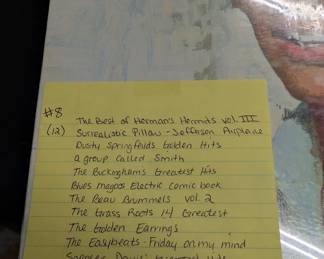 #8
(12) The Best of Herman's Hermits vol. III
Surrealistic Pillow - Jefferson Airplane
Dusty Springfields Golden Hits
a group called Smith
The Buckinghams Greatest Hits
Blues magoos Electric Comic book
The Beau Brummels vol. 2
The Grass Roots 14 Greatest
The Golden Earrings
The Easybeats - Friday on my mind